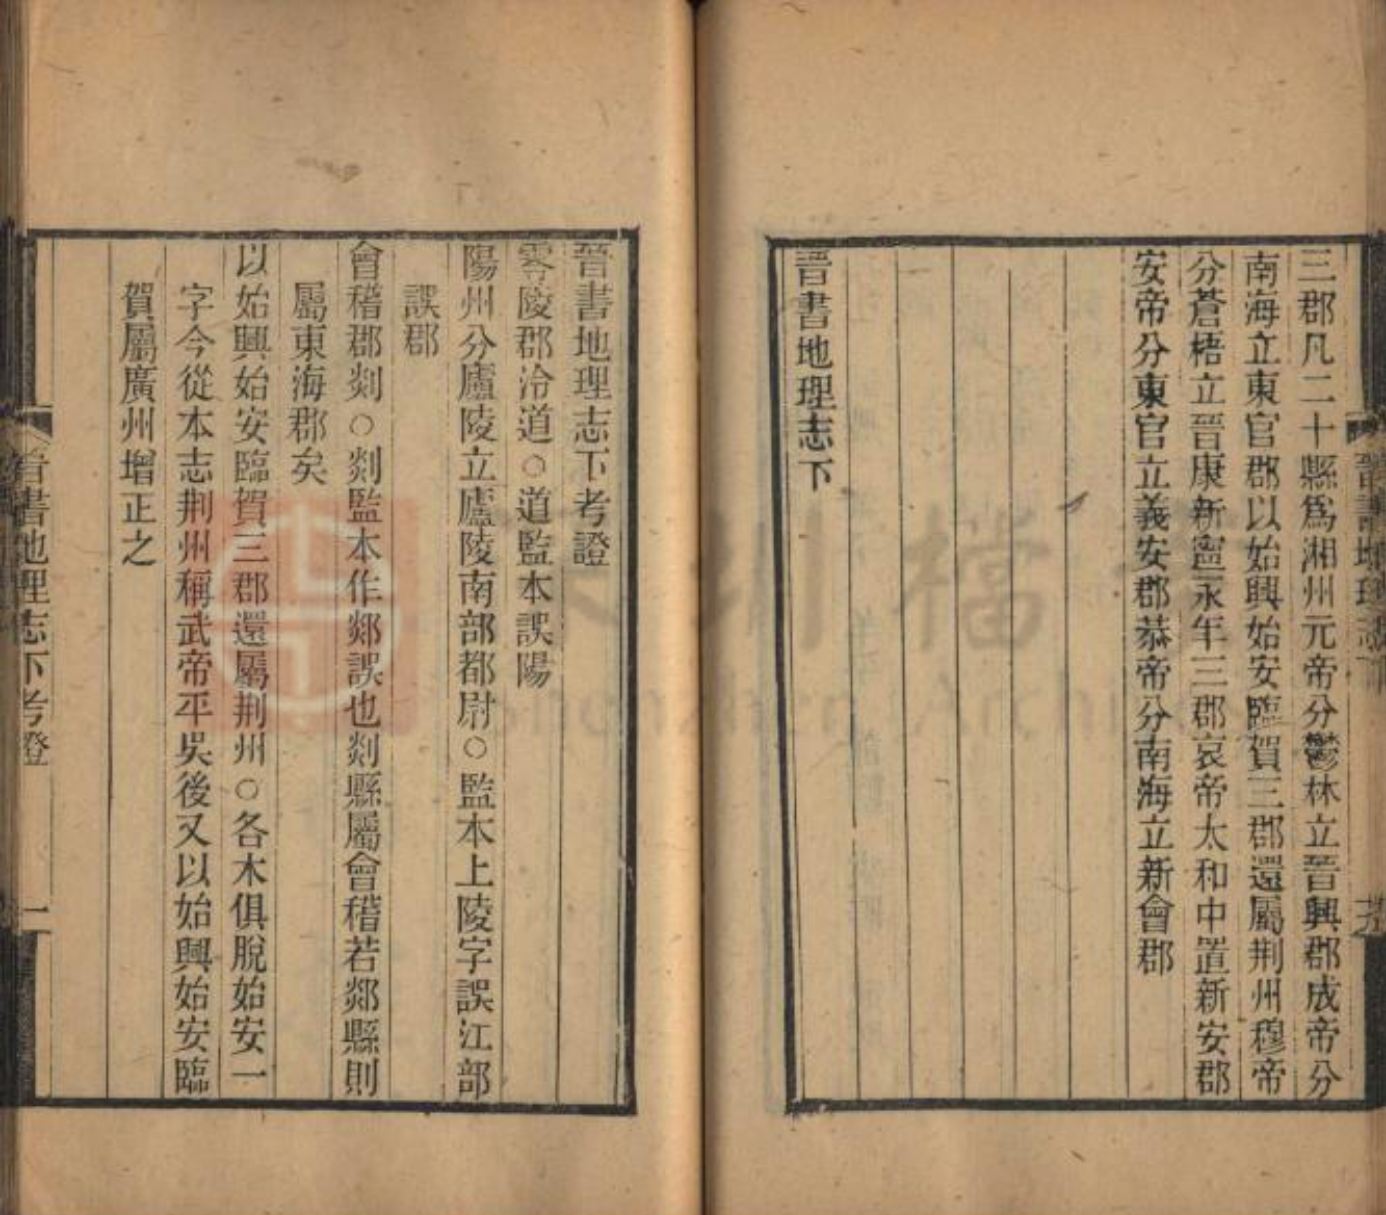 三郡凡二十縣為湘州元帝分鬱林立晉興郡成帝分
南海立東官郡以始興始安臨賀三郡還屬荆州穆帝
分蒼梧立晉康新寧永年三郡哀帝太和中置新安郡
安帝分東官立義安郡恭帝分南海立新會郡
晉書地理志下
晉書地理志下考證
零陵郡泠道○道監本誤陽
陽州分廬陵立廬陵南部都尉○監本上陵字誤江部
誤郡
會稽郡剡○剡監本作郯誤也剡縣屬會稽若郯縣則
屬東海郡矣
以始興始安臨賀三郡還屬荆州○各木俱脫始安一
字今從本志荆州稱武帝平吳後又以始興始安臨
賀屬廣州增正之
晉書地理志下考證
一